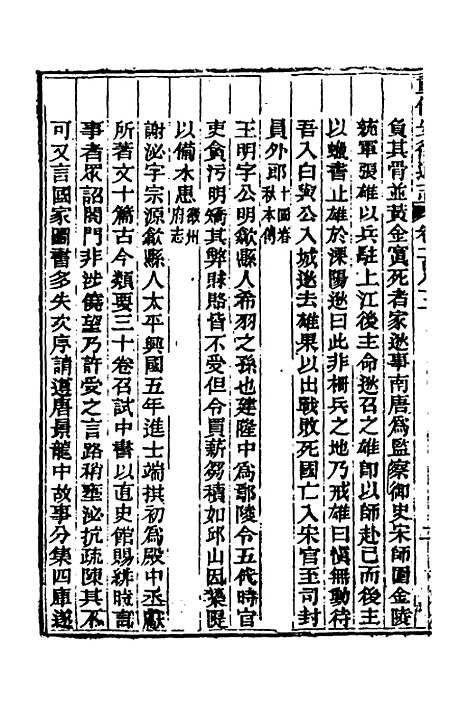 負其骨並黃金實死者家遂事南唐爲監察御史宋師圍金陵
統軍張雄以兵駐上江後主命遂召之雄卽以師赴已而後主
以蠟書止雄於溧陽遂曰此非柵兵之地乃戒雄曰愼無動待
吾入白與公入城遂去雄果以出戰敗死國亡入宋官至司封
員外郎十國春秋本傳
王明字公明歙縣人希羽之孫也建隆中爲鄢陵令五代時官
吏貪污明矯其弊賕賂皆不受但令買薪芻積如邱山因築隄
以備水患徽州府志
謝泌字宗源歙縣人太平興國五年進士端拱初爲殿中丞獻
所著文十篇古今類要三十卷召試中書以直史館賜緋時言
事者眾詔閤門非涉僥望乃許受之言路稍壅泌抗疏陳其不
可又言國家圖書多失次序請遵唐景龍中故事分集四庫遂